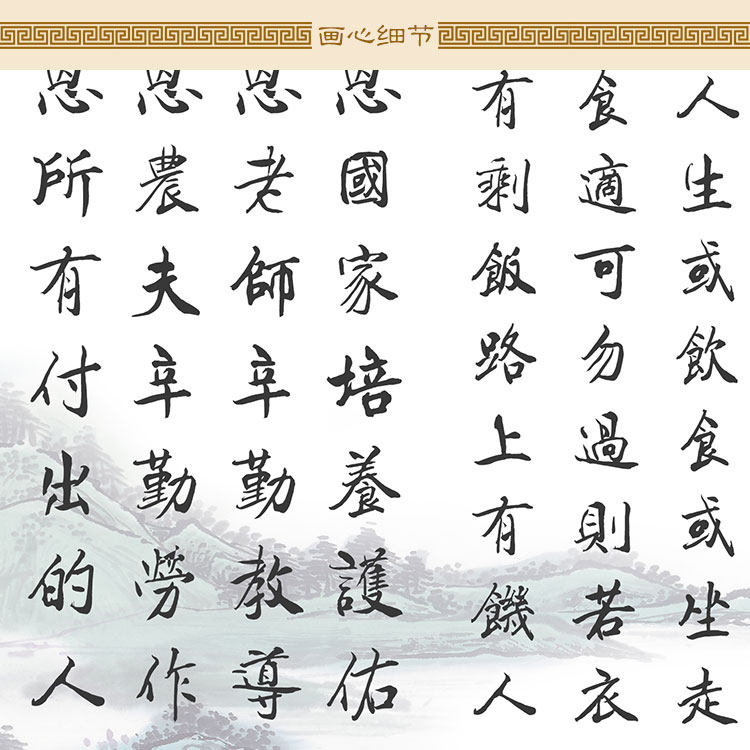 画心细节
人生或飲食或坐走
食適可勿過則若衣
有剩飯路上有饑人
恩國家培養護佑
恩老師辛勤教導
恩農夫辛勤勞作
恩所有付出的人